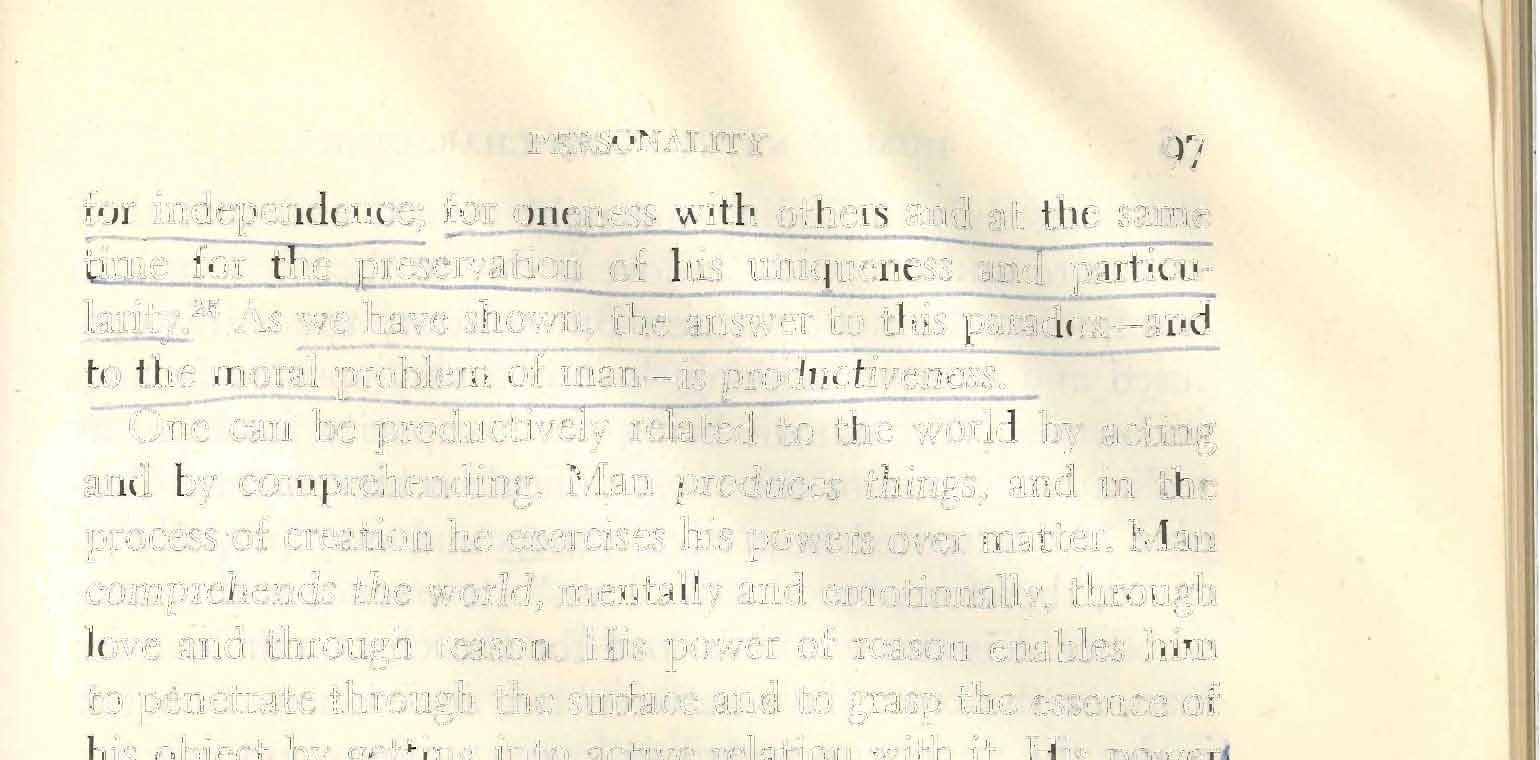 PERSONALITY 97
for independence; for oneness with others and at the same
time for the preservation of his uniqueness and particu-
larity.²⁵ As we have shown, the answer to this paradox—and
to the moral problem of man—is productiveness.
One can be productively related to the world by acting
and by comprehending. Man produces things, and in the
process of creation he exercises his powers over matter. Man
comprehends the world, mentally and emotionally, through
love and through reason. His power of reason enables him
to penetrate through the surface and to grasp the essence of
his object by getting into active relation with it. His power